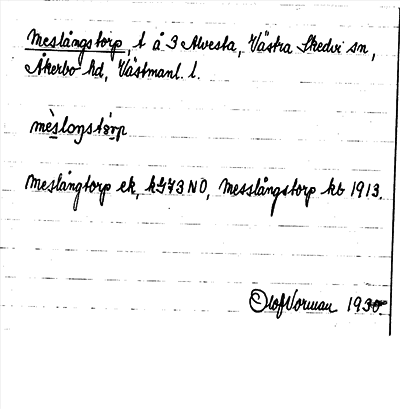 Meslångstorp, t å 3 Alvesta, Västra Skedvi sn,
Åkerbo hd, Västmanl. l.
mèsloŋstòrp
Meslångtorp ek, k 73 NO, Messlångstorp kb 1913.
Olof Vorman 1930.